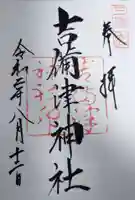 奉拝
吉備津神社
令和二年八月十二日